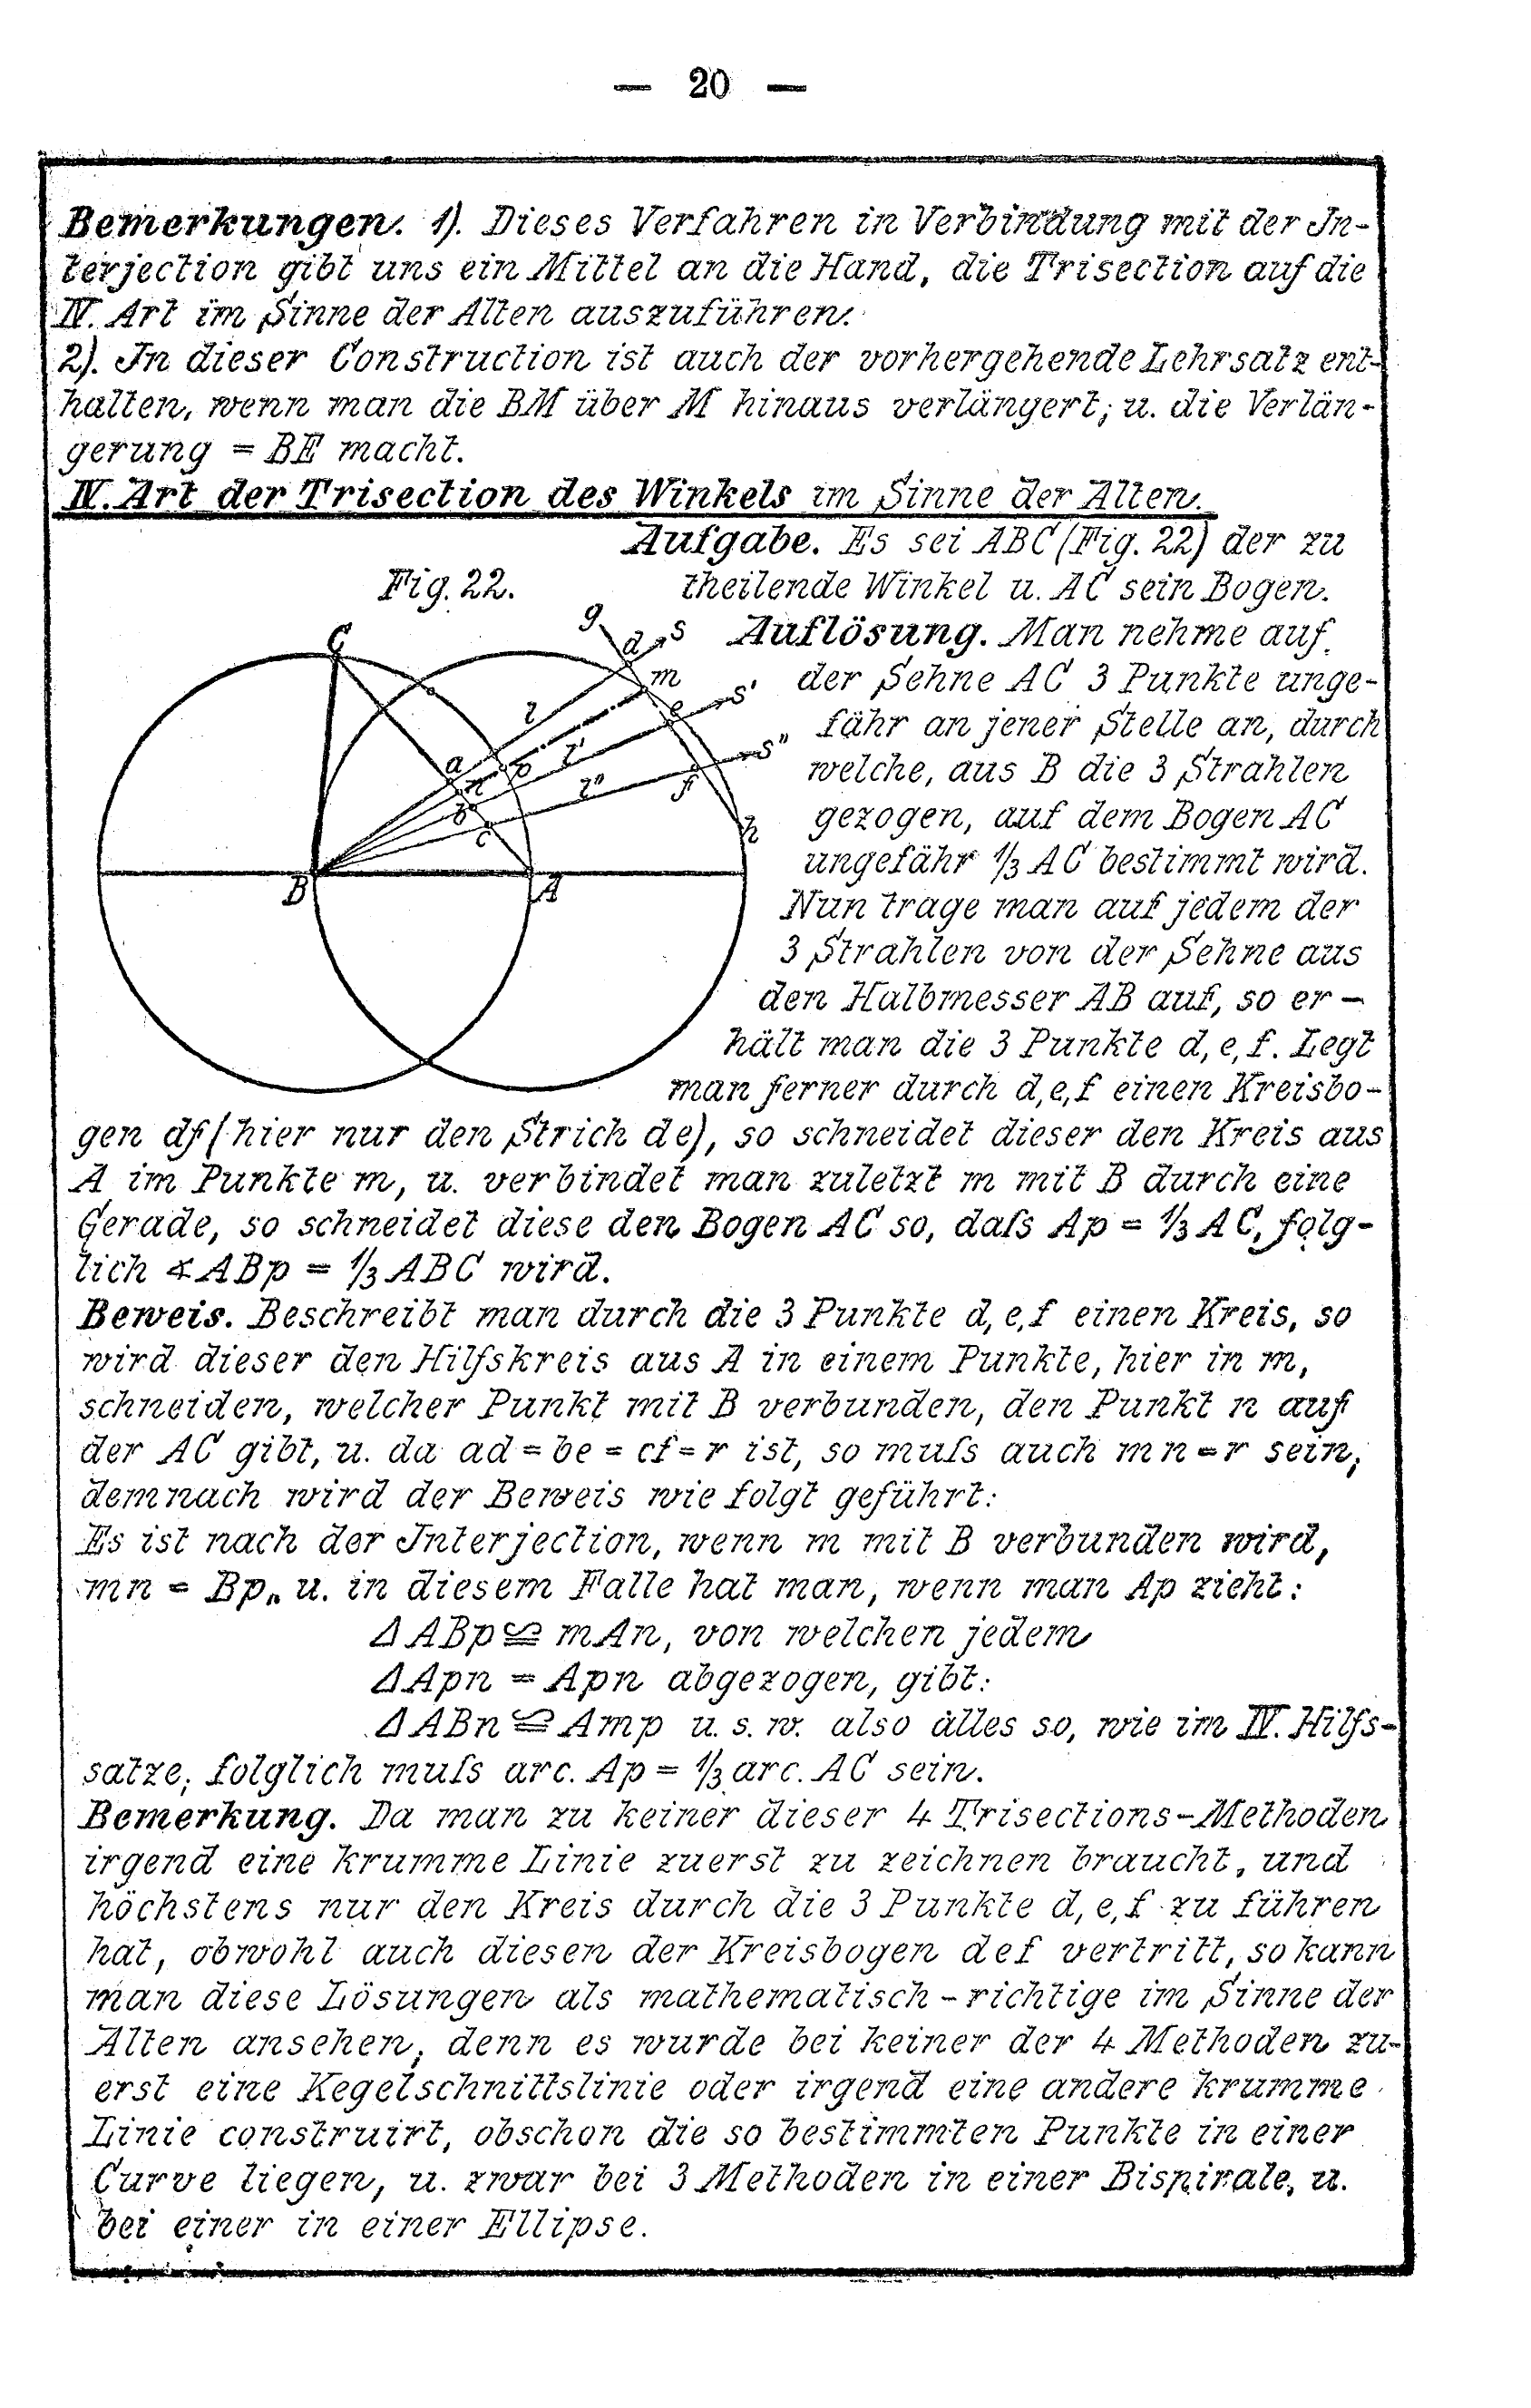 — 20 —
Bemerkungen. 1). Dieses Verfahren in Verbindung mit der In-
terjection gibt uns ein Mittel an die Hand, die Trisection auf die
IV. Art im Sinne der Alten auszuführen.
2). In dieser Construction ist auch der vorhergehende Lehrsatz ent-
halten, wenn man die BM über M hinaus verlängert, u. die Verlän-
gerung = BE macht.
IV. Art der Trisection des Winkels im Sinne der Alten.
Aufgabe. Es sei ABC (Fig. 22) der zu
Fig. 22.
theilende Winkel u. AC sein Bogen.
g
d
s
C
m
s'
e
l
s"
a
p
l'
n
l"
f
b
c
h
B
A
Auflösung. Man nehme auf
der Sehne AC 3 Punkte unge-
fähr an jener Stelle an, durch
welche, aus B die 3 Strahlen
gezogen, auf dem Bogen AC
ungefähr 1/3 AC bestimmt wird.
Nun trage man auf jedem der
3 Strahlen von der Sehne aus
den Halbmesser AB auf, so er-
hält man die 3 Punkte d, e, f. Legt
man ferner durch d, e, f einen Kreisbo-
gen df (hier nur den Strich de), so schneidet dieser den Kreis aus
A im Punkte m, u. verbindet man zuletzt m mit B durch eine
Gerade, so schneidet diese den Bogen AC so, daſs Ap = 1/3 AC, folg-
lich ∢ ABp = 1/3 ABC wird.
Beweis. Beschreibt man durch die 3 Punkte d, e, f einen Kreis, so
wird dieser den Hilfskreis aus A in einem Punkte, hier in m,
schneiden, welcher Punkt mit B verbunden, den Punkt n auf
der AC gibt, u. da ad = be = cf = r ist, so muſs auch mn = r sein,
demnach wird der Beweis wie folgt geführt:
Es ist nach der Interjection, wenn m mit B verbunden wird,
mn = Bp, u. in diesem Falle hat man, wenn man Ap zieht:
Δ ABp ≅ mAn, von welchen jedem
Δ Apn = Apn abgezogen, gibt:
Δ ABn ≅ Amp u. s. w. also alles so, wie im IV. Hilfs-
satze, folglich muſs arc. Ap = 1/3 arc. AC sein.
Bemerkung. Da man zu keiner dieser 4 Trisections-Methoden
irgend eine krumme Linie zuerst zu zeichnen braucht, und
höchstens nur den Kreis durch die 3 Punkte d, e, f zu führen
hat, obwohl auch diesen der Kreisbogen def vertritt, so kann
man diese Lösungen als mathematisch-richtige im Sinne der
Alten ansehen, denn es wurde bei keiner der 4 Methoden zu-
erst eine Kegelschnittslinie oder irgend eine andere krumme
Linie construirt, obschon die so bestimmten Punkte in einer
Curve liegen, u. zwar bei 3 Methoden in einer Bispirale, u.
bei einer in einer Ellipse.